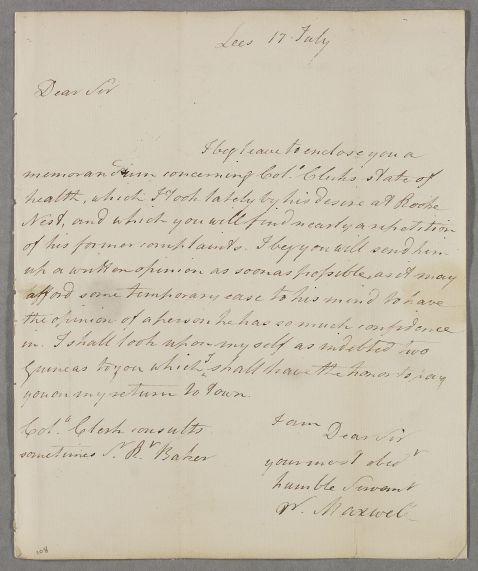 Lees 17 July
Dear Sir
I beg leave to enclose you a
memorandum concerning Col.l Clerk's state of
health, which I took lately by his desire at Roche
Nest, and which you will find nearly a repetition
of his former complaints. I beg you will send him
up a written opinion as soon as possible, as it may
afford some temporary ease to his mind to have
the opinion of a person he has so much confidence
in. I shall look upon my self as indebted two
Guineas to you which I shall have the honor to pay
you on my return to Town.
Col.l Clerk consults
sometimes Sr. Baker
I am
Dear Sir
your most obedt
humble Servant
W. Maxwell
108